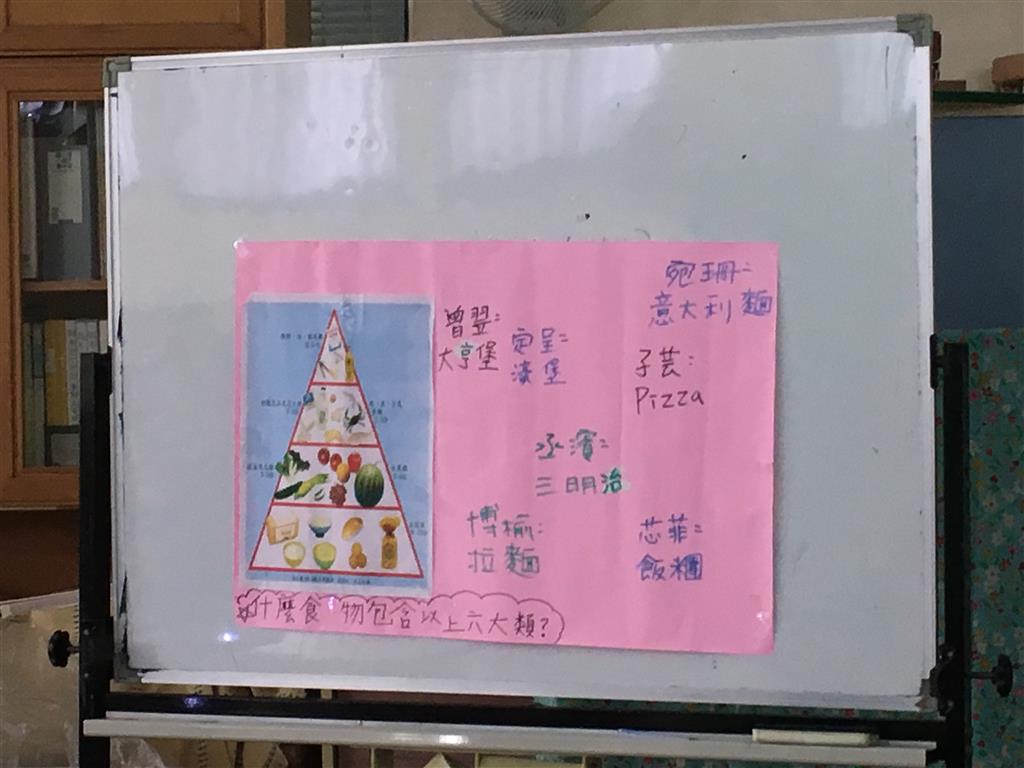 曾翌:
大亨堡
定呈:
漢堡
宛珊:
意大利麵
子芸:
Pizza
丞濱:
三明治
博榆:
拉麵
芯菲:
飯糰
什麼食物包含以上六大類?